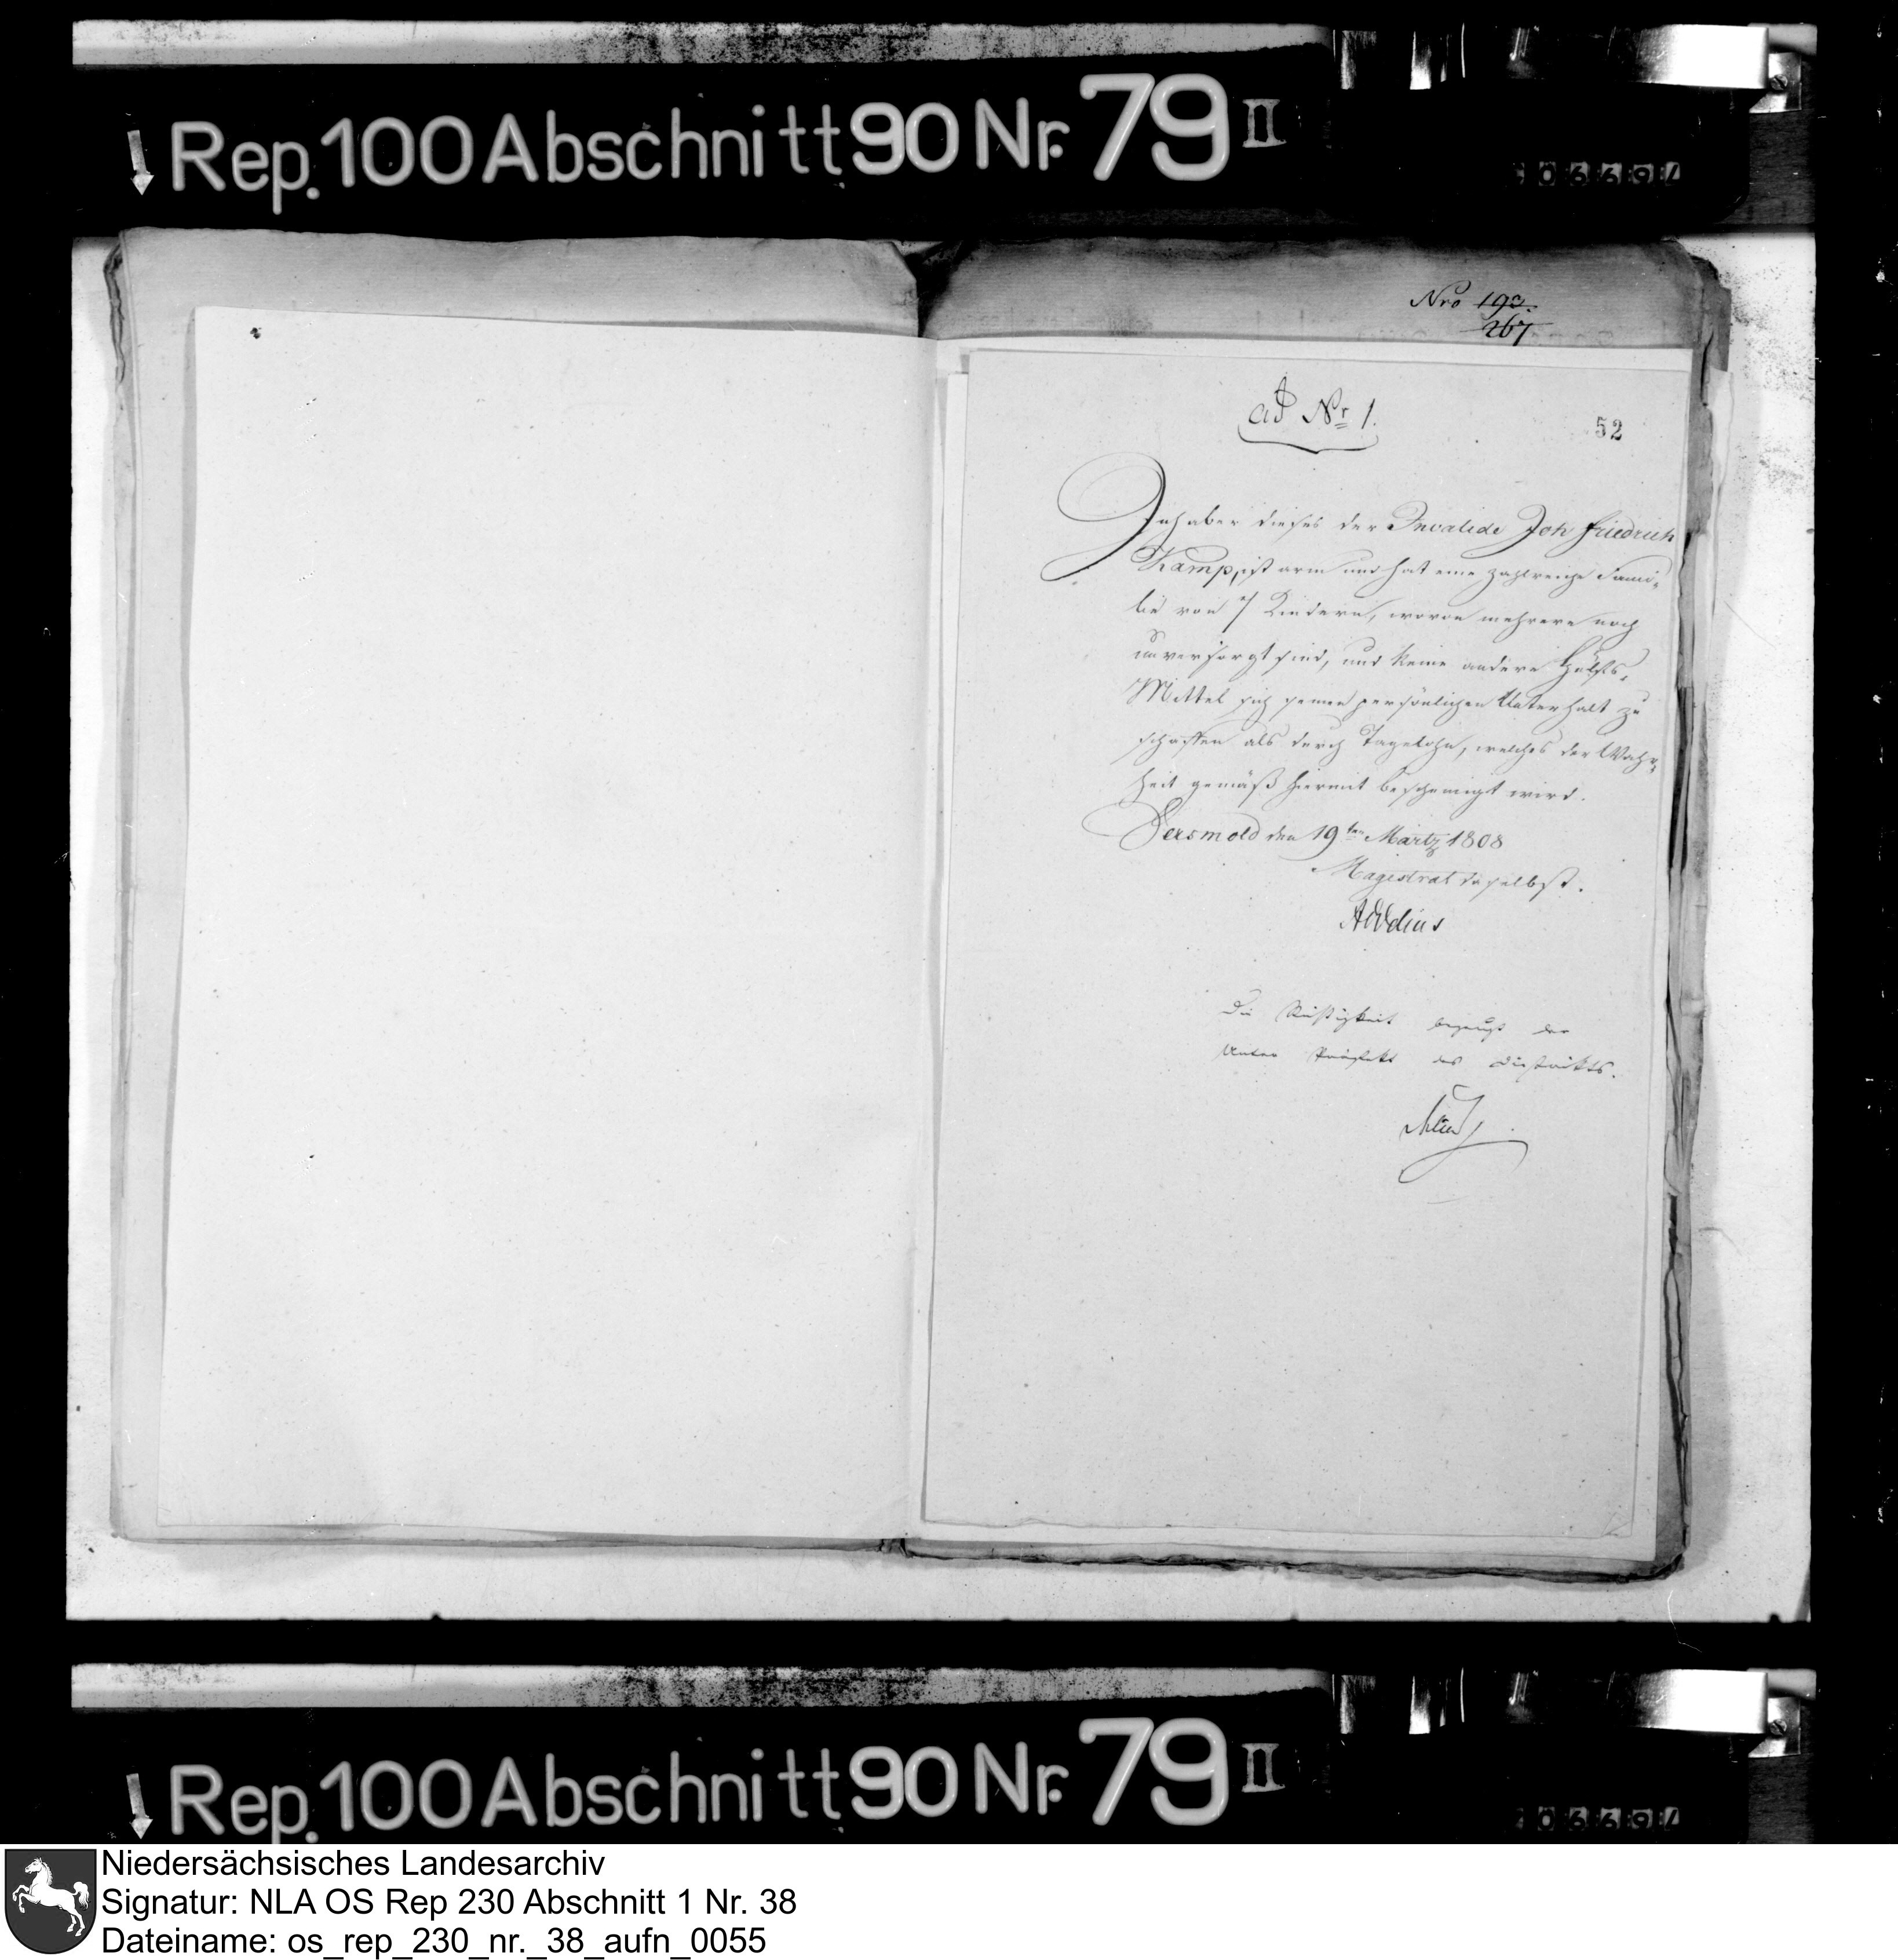 Rep. 100 Abschnitt 90 Nr. 79 II
Nro 190.
267
ad Nr. 1.
52
Inhaber dieses der Invalide Joh Friedrich
Kamp, ist arm und hat eine zahlreiche Fami-
lie von 7 Kindern, wovon mehrere noch
unversorgt sind, und keine andere Hülfs-
Mittel sich seinen persönlichen Unterhalt zu
schaffen als durch Tagelohn, welches der Wahr-
heit gemäß hiermit bescheinigt wird.
Versmold den 19ten Martz 1808
Magistrat daselbst.
Die Richtigkeit bezeugt der
Unter Präfekt des Districkts.
Rep. 100 Abschnitt 90 Nr. 79 II
Niedersächsisches Landesarchiv
Signatur: NLA OS Rep 230 Abschnitt 1 Nr. 38
Dateiname: os_rep_230_nr._38_aufn_0055